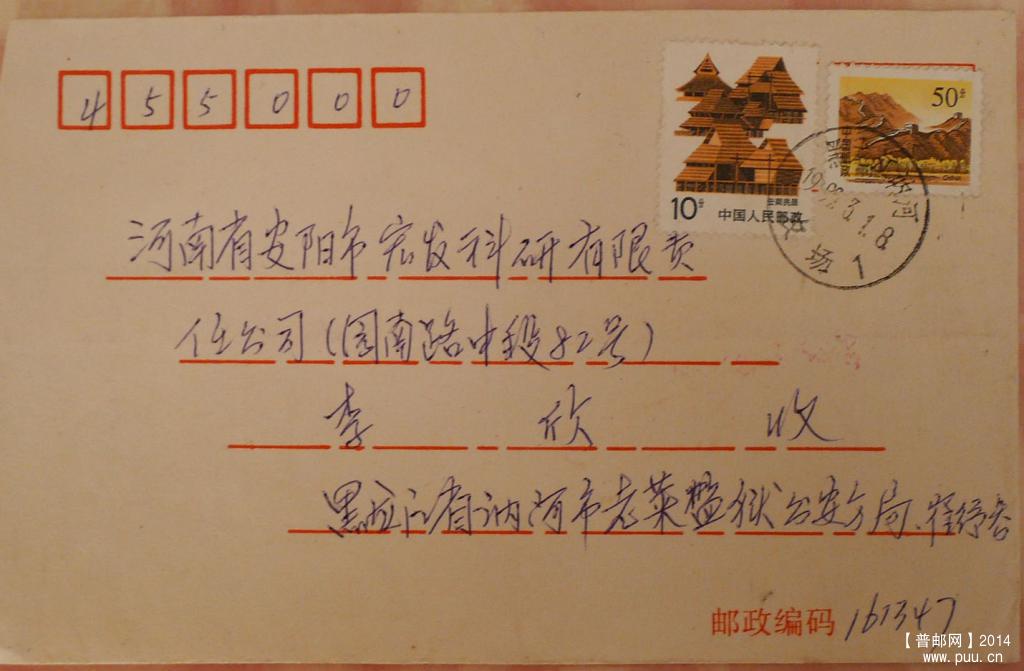 455000
50分
10分
云南民居
中国人民邮政
1998.3.1.8
河南省安阳市宏发科研有限责
任公司(园南路中段82号)
李 欣 收
黑龙江省讷河市老莱监狱公安分局
邮政编码 161347
【普邮网】2014
www.puu.cn